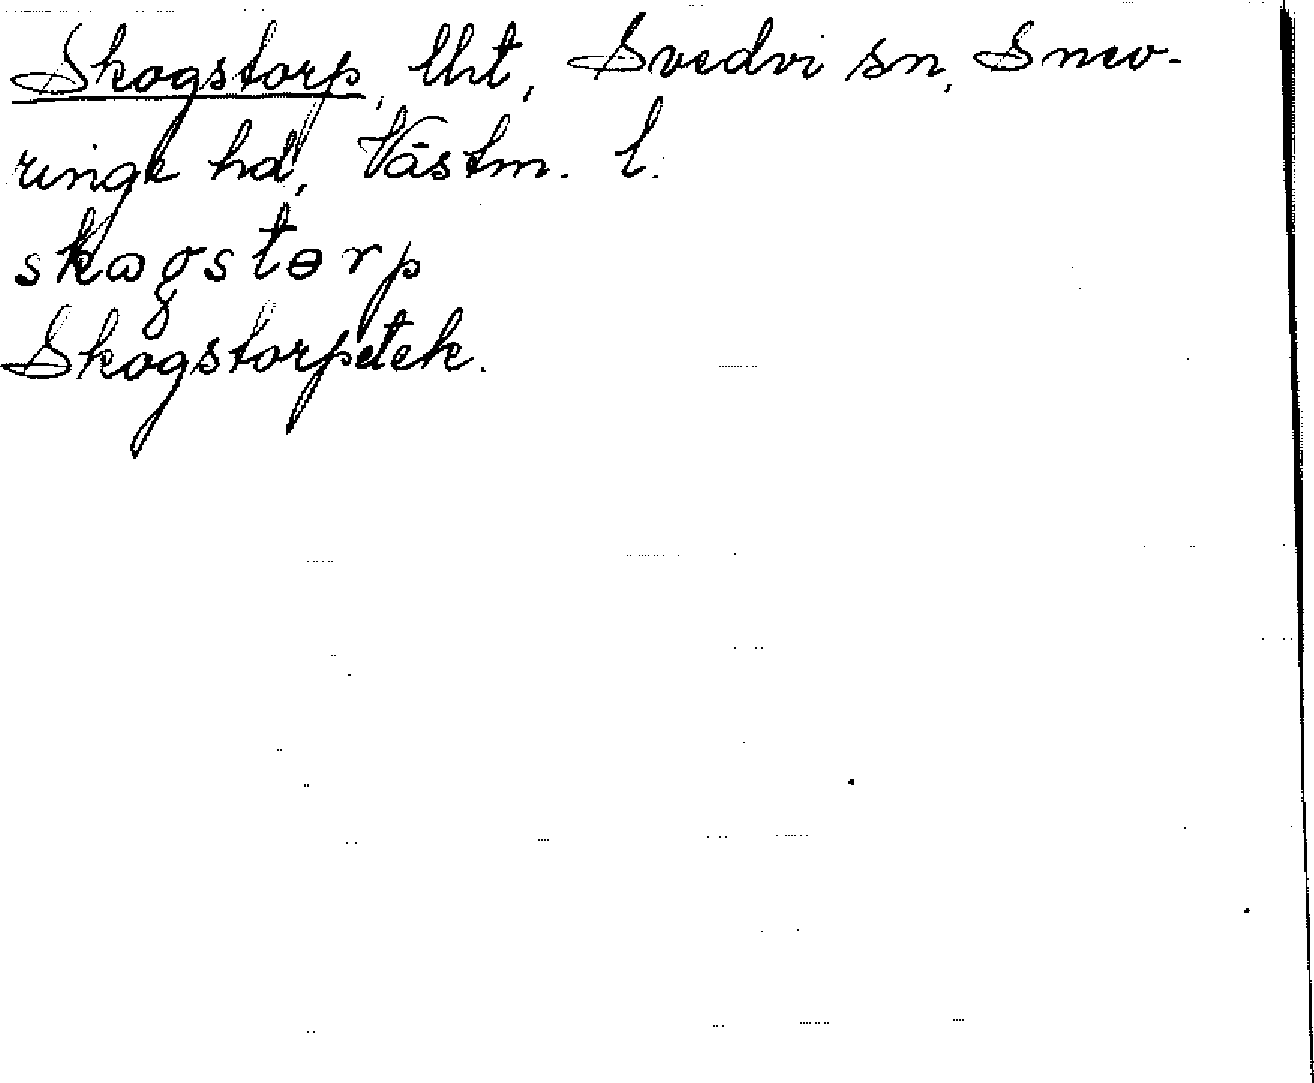 Skogstorp, lht, Svedvi sn, Snev-
ringe hd, Västm. l.
skogstorp
Skogstorp ek.